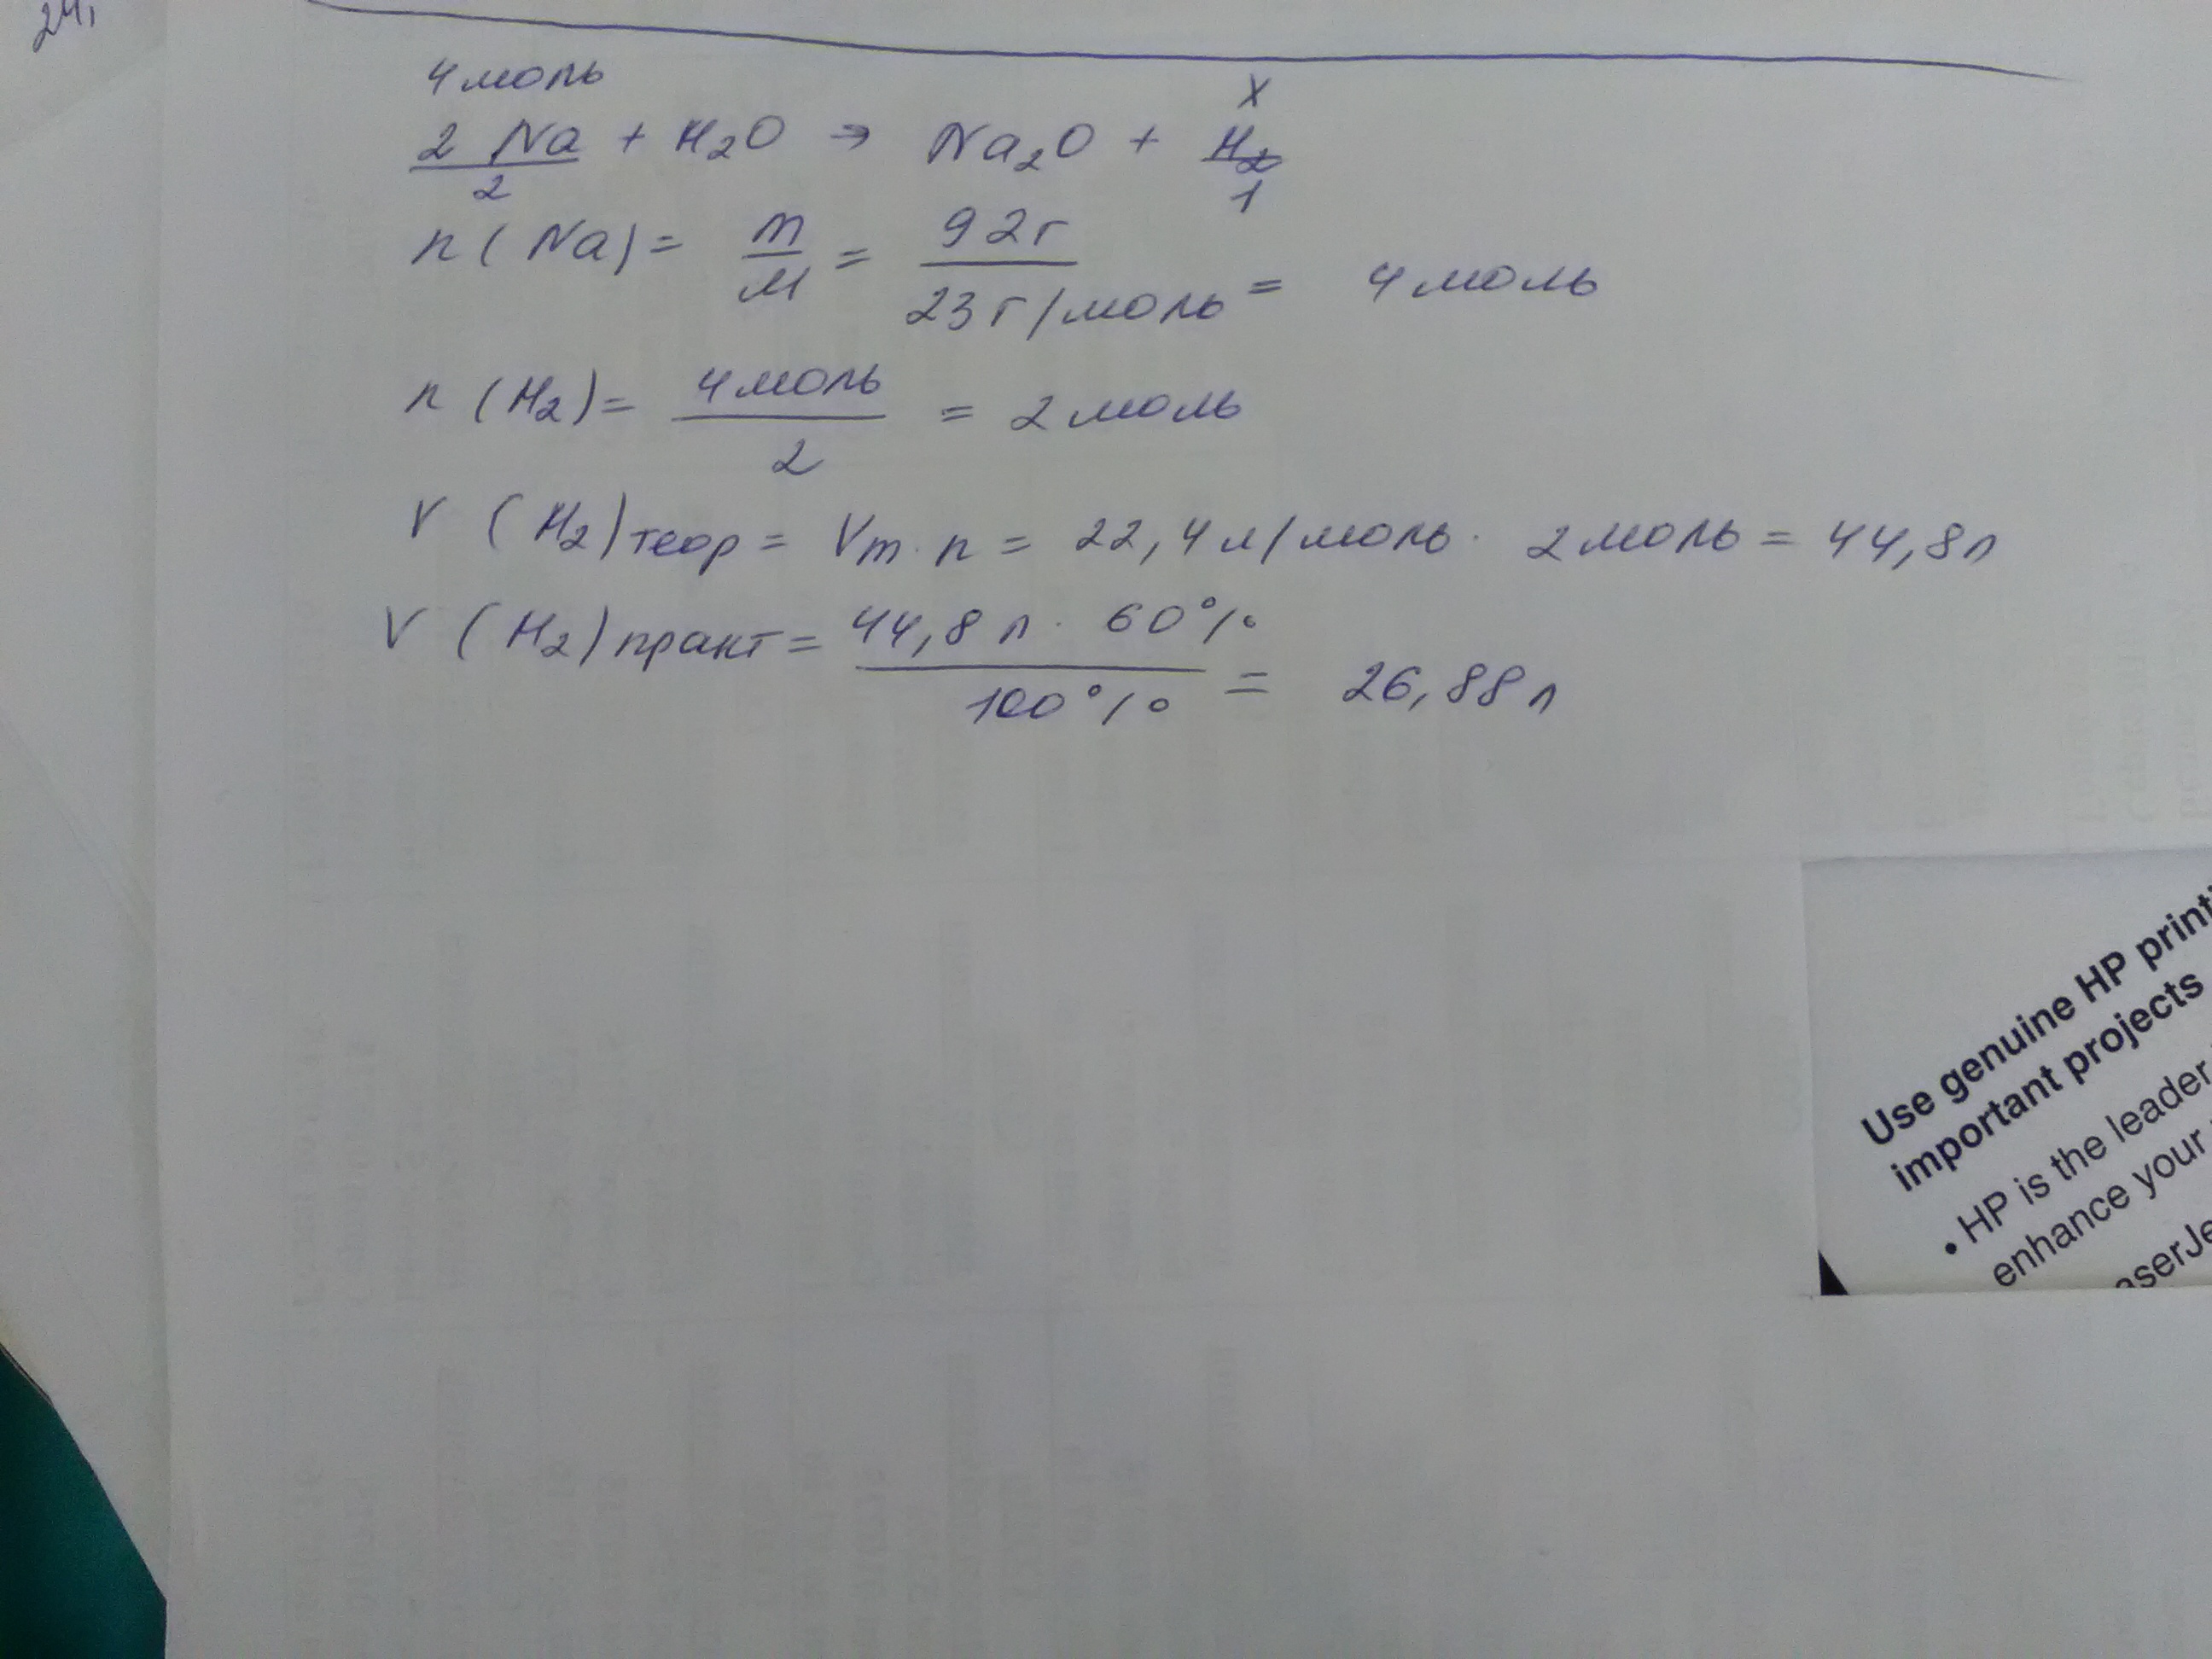 24,
4 моль x
2 Na + H₂O → Na₂O + H₂
2 1
n (Na) = m/M = 92г / 23 г/моль = 4 моль
n (H₂) = 4 моль / 2 = 2 моль
V (H₂) теор = Vm · n = 22,4 л/моль · 2 моль = 44,8 л
V (H₂) практ = 44,8 л · 60% / 100% = 26,88 л
Use genuine HP
important projects
• HP is the leader
enhance your